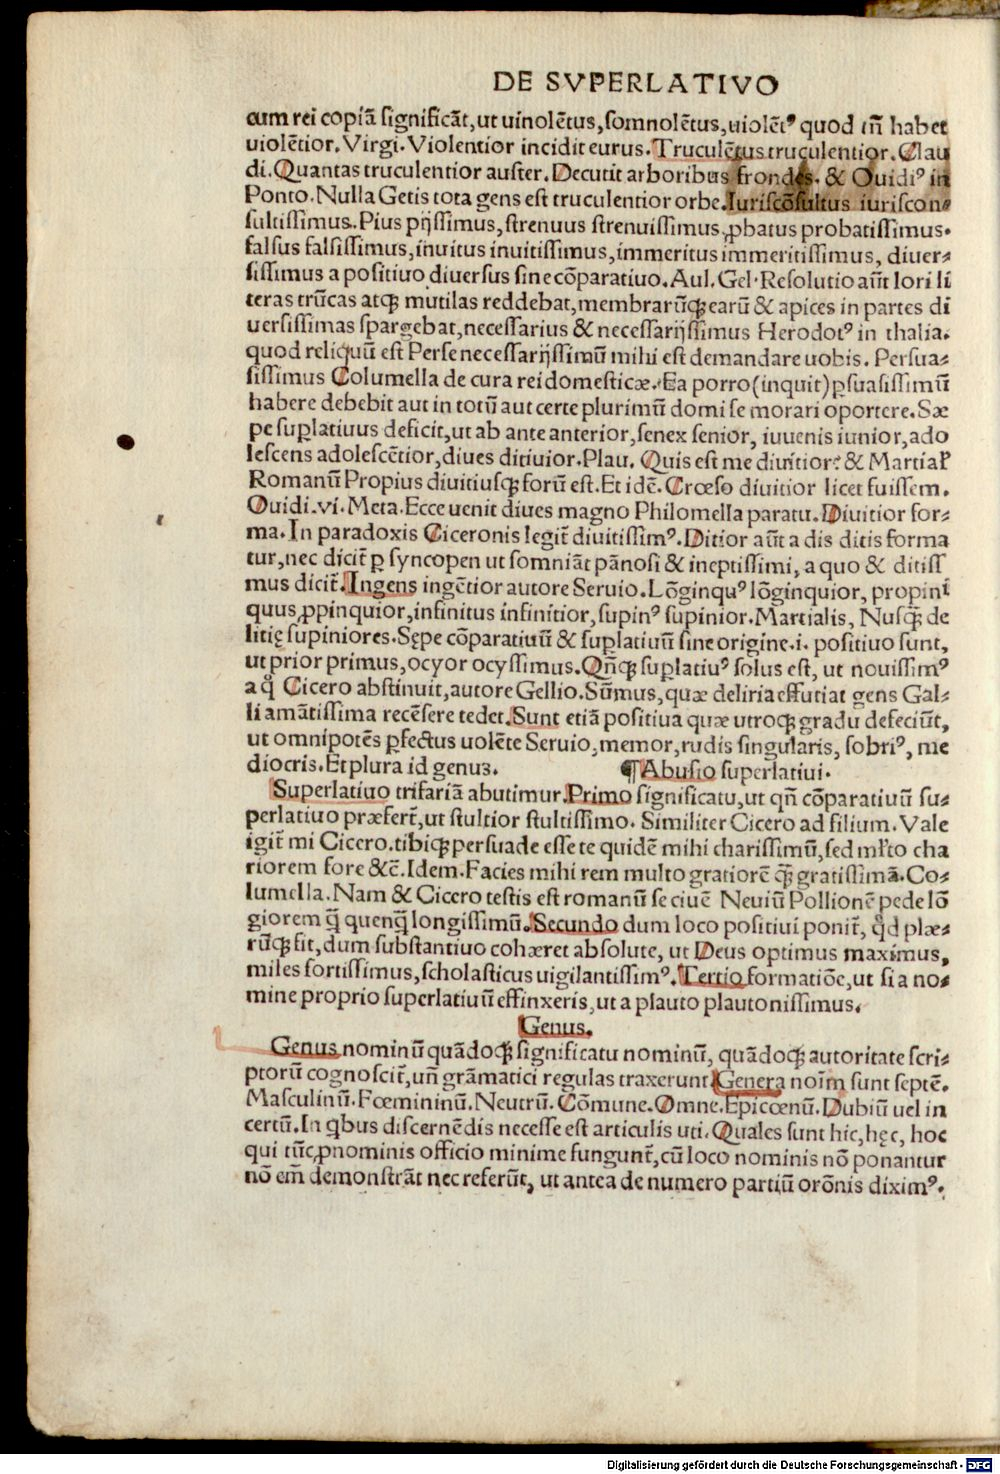 DE SVPERLATIVO
cum rei copiā significāt, ut uinolētus, somnolētus, uiolētꝰ quod tn̄ habet
uiolētior. Virgi. Violentior incidit eurus. Truculētus truculentior. Clau
di. Quantas truculentior auster. Decutit arboribus frondes. & Ouidiꝰ in
Ponto. Nulla Getis tota gens est truculentior orbe. Iuriscōsultus iuriscon⸗
sultissimus. Pius pijssimus, strenuus strenuissimus, ꝓbatus probatissimus.
falsus falsissimus, inuitus inuitissimus, immeritus immeritissimus, diuer⸗
sissimus a positiuo diuersus sine cōparatiuo. Aul. Gel. Resolutio aūt lori li
teras trūcas atqꝫ mutilas reddebat, membrarūqꝫ earū & apices in partes di
uersissimas spargebat, necessarius & necessarijssimus Herodotꝰ in thalia.
quod reliquū est Perse necessarijssimū mihi est demandare uobis. Persua⸗
sissimus Columella de cura rei domesticæ. Ea porro (inquit) ꝑsuasissimū
habere debebit aut in totū aut certe plurimū domi se morari oportere. Sæ
pe suꝑlatiuus deficit, ut ab ante anterior, senex senior, iuuenis iunior, ado
lescens adolescētior, diues ditiuior. Plau. Quis est me diuitior? & Martial̄
Romanū Propius diuitiusqꝫ forū est. Et idē. Crœso diuitior licet fuissem.
Ouidi. vi. Meta. Ecce uenit diues magno Philomella paratu. Diuitior for⸗
ma. In paradoxis Ciceronis legit̄ diuitissimꝰ. Ditior aūt a dis ditis forma
tur, nec dicit̄ ꝑ syncopen ut somniāt pānosi & ineptissimi, a quo & ditiss
mus dicit̄. Ingens ingētior autore Seruio. Lōginquꝰ lōginquior, propin
quus ꝓpinquior, infinitus infinitior, supinꝰ supinior. Martialis, Nusq̄ de
litię supiniores. Sępe cōparatiuū & suꝑlatiuū sine origine .i. positiuo sunt,
ut prior primus, ocyor ocyssimus. Qn̄qꝫ suꝑlatiuꝰ solus est, ut nouissimꝰ
a q̊ Cicero abstinuit, autore Gellio. Sūmus, quæ deliria effutiat gens Gal⸗
li amātissima recēsere tedet. Sunt etiā positiua quæ utroqꝫ gradu defeciūt,
ut omnipotēs ꝑfectus uolēte Seruio, memor, rudis singularis, sobriꝰ, me
diocris. Et plura id genus. ¶ Abusio superlatiui.
Superlatiuo trifariā abutimur. Primo significatu, ut qn̄ cōparatiuū su⸗
perlatiuo præfert̄, ut stultior stultissimo. Similiter Cicero ad filium. Vale
igit̄ mi Cicero. tibiqꝫ persuade esse te quidē mihi charissimū, sed ml̄to cha
riorem fore &c̄. Idem. Facies mihi rem multo gratiorē q̄ꝫ gratissimā. Co⸗
lumella. Nam & Cicero testis est romanū se ciuē Neuiū Pollionē pede lō
giorem q̄ꝫ quenq̄ꝫ longissimū. Secundo dum loco positiui ponit̄, qd̊ plæ⸗
rūqꝫ fit, dum substantiuo cohæret absolute, ut Deus optimus maximus,
miles fortissimus, scholasticus uigilantissimꝰ. Tertio formatiōe, ut si a no⸗
mine proprio superlatiuū effinxeris, ut a plauto plautonissimus.
Genus.
Genus nominū quādoqꝫ significatu nominū, quādoqꝫ autoritate scri⸗
ptorū cognoscit̄, un̄ grāmatici regulas traxerunt. Genera noīm sunt septē.
Masculinū. Fœmininū. Neutrū. Cōmune. Omne. Epicœnū. Dubiū uel in
certū. In qbus discernēdis necesse est articulis uti. Quales sunt hic, hęc, hoc
qui tūc ꝓnominis officio minime fungunt̄, cū loco nominis nō ponantur
nō em̄ demonstrāt nec referūt, ut antea de numero partiū orōnis diximꝰ.
Digitalisierung gefördert durch die Deutsche Forschungsgemeinschaft - DFG